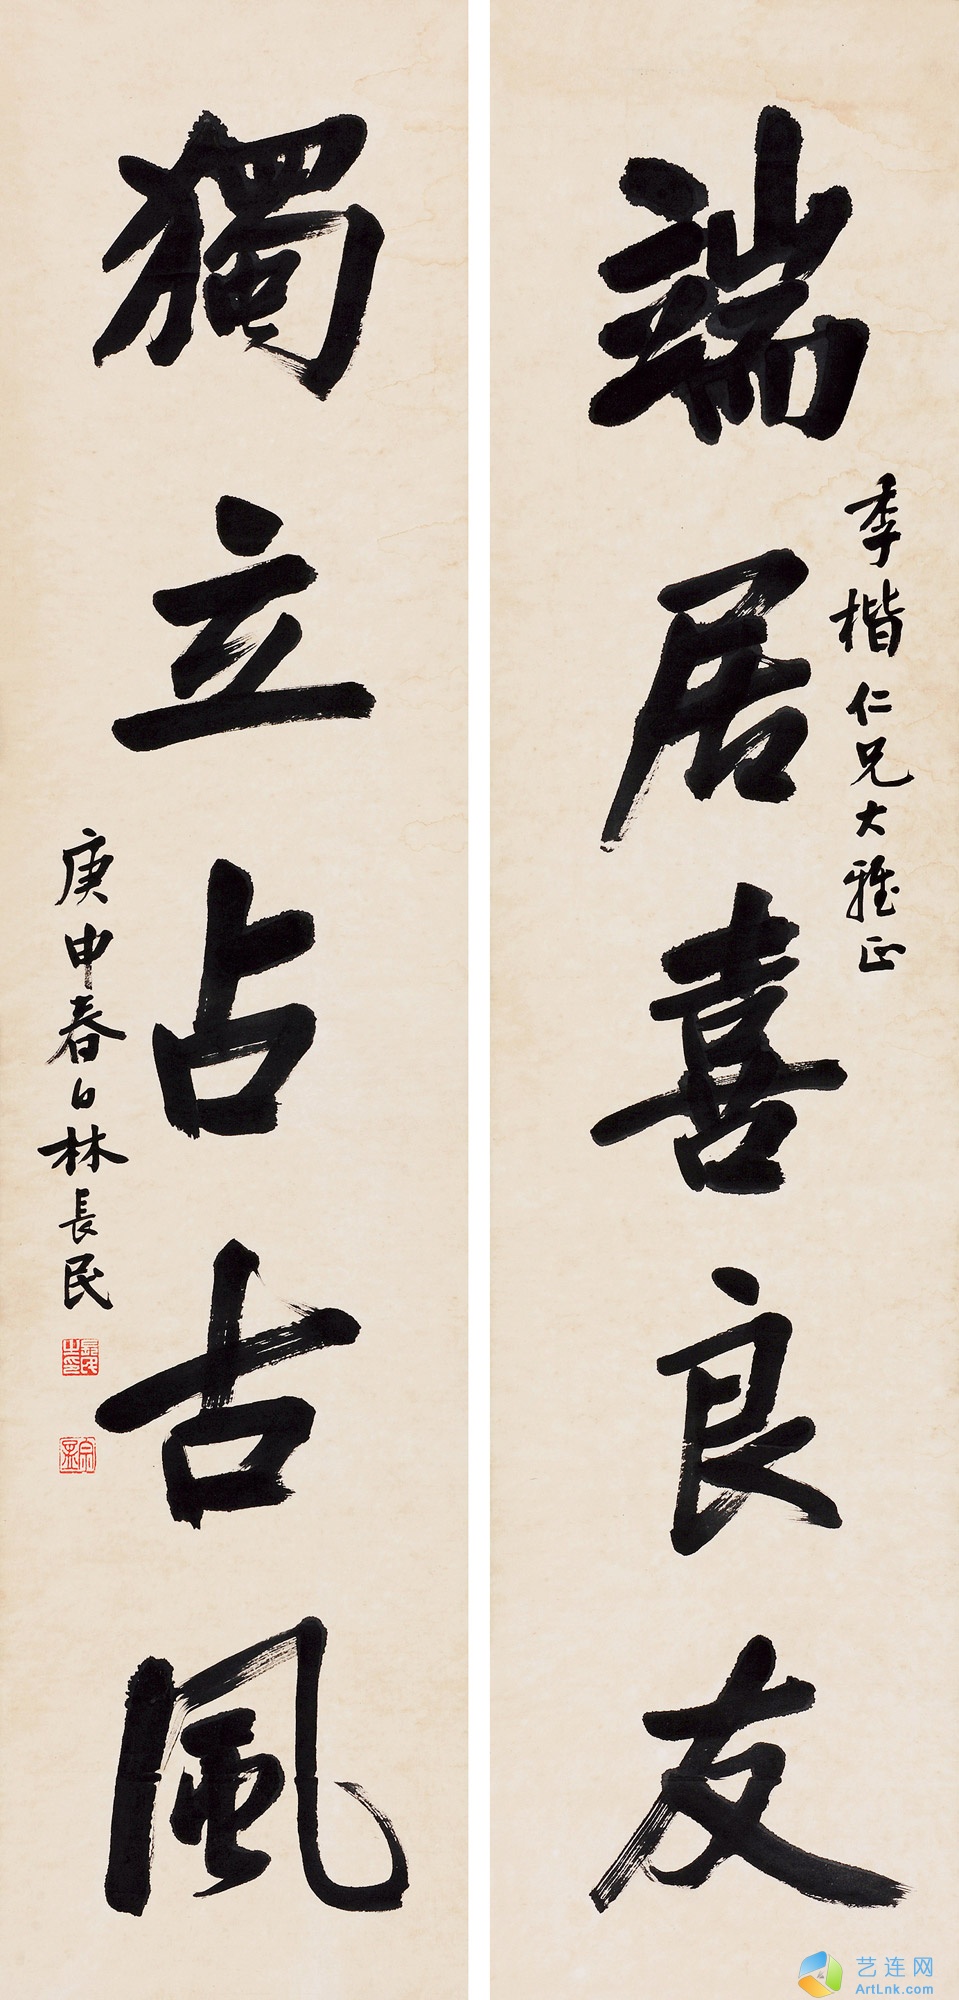 端居喜良友
季楷仁兄大雅正
獨立占古風
庚申春日林長民
長民之印
宗孟
艺连网
ArtLnk.com